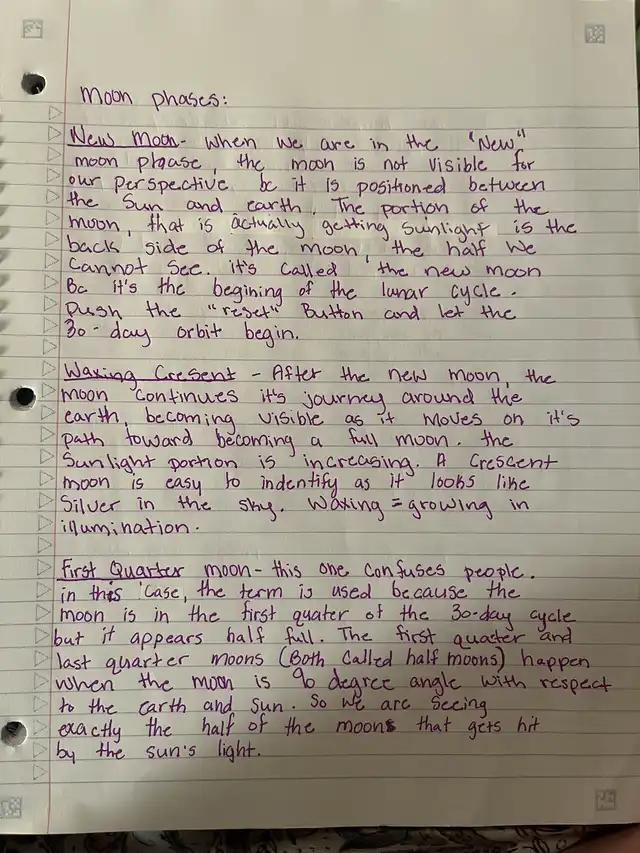 Moon phases:
New Moon- when we are in the "New"
moon phase, the moon is not visible for
our perspective bc it is positioned between
the Sun and earth. The portion of the
moon, that is actually getting sunlight is the
back side of the moon, the half we
cannot see. it's called the new moon
Bc it's the begining of the lunar cycle.
Push the "reset" Button and let the
30-day orbit begin.
Waxing Cresent - After the new moon, the
moon continues it's journey around the
earth, becoming visible as it moves on it's
path toward becoming a full moon. the
Sunlight portion is increasing. A Crescent
moon is easy to indentify as it looks like
Silver in the sky. Waxing = growing in
illumination.
First Quarter moon- this one confuses people.
in this case, the term is used because the
moon is in the first quater of the 30-day cycle
but it appears half full. The first quarter and
last quarter moons (Both called half moons) happen
when the moon is 90 degree angle with respect
to the earth and sun. So we are seeing
exactly the half of the moons that gets hit
by the sun's light.